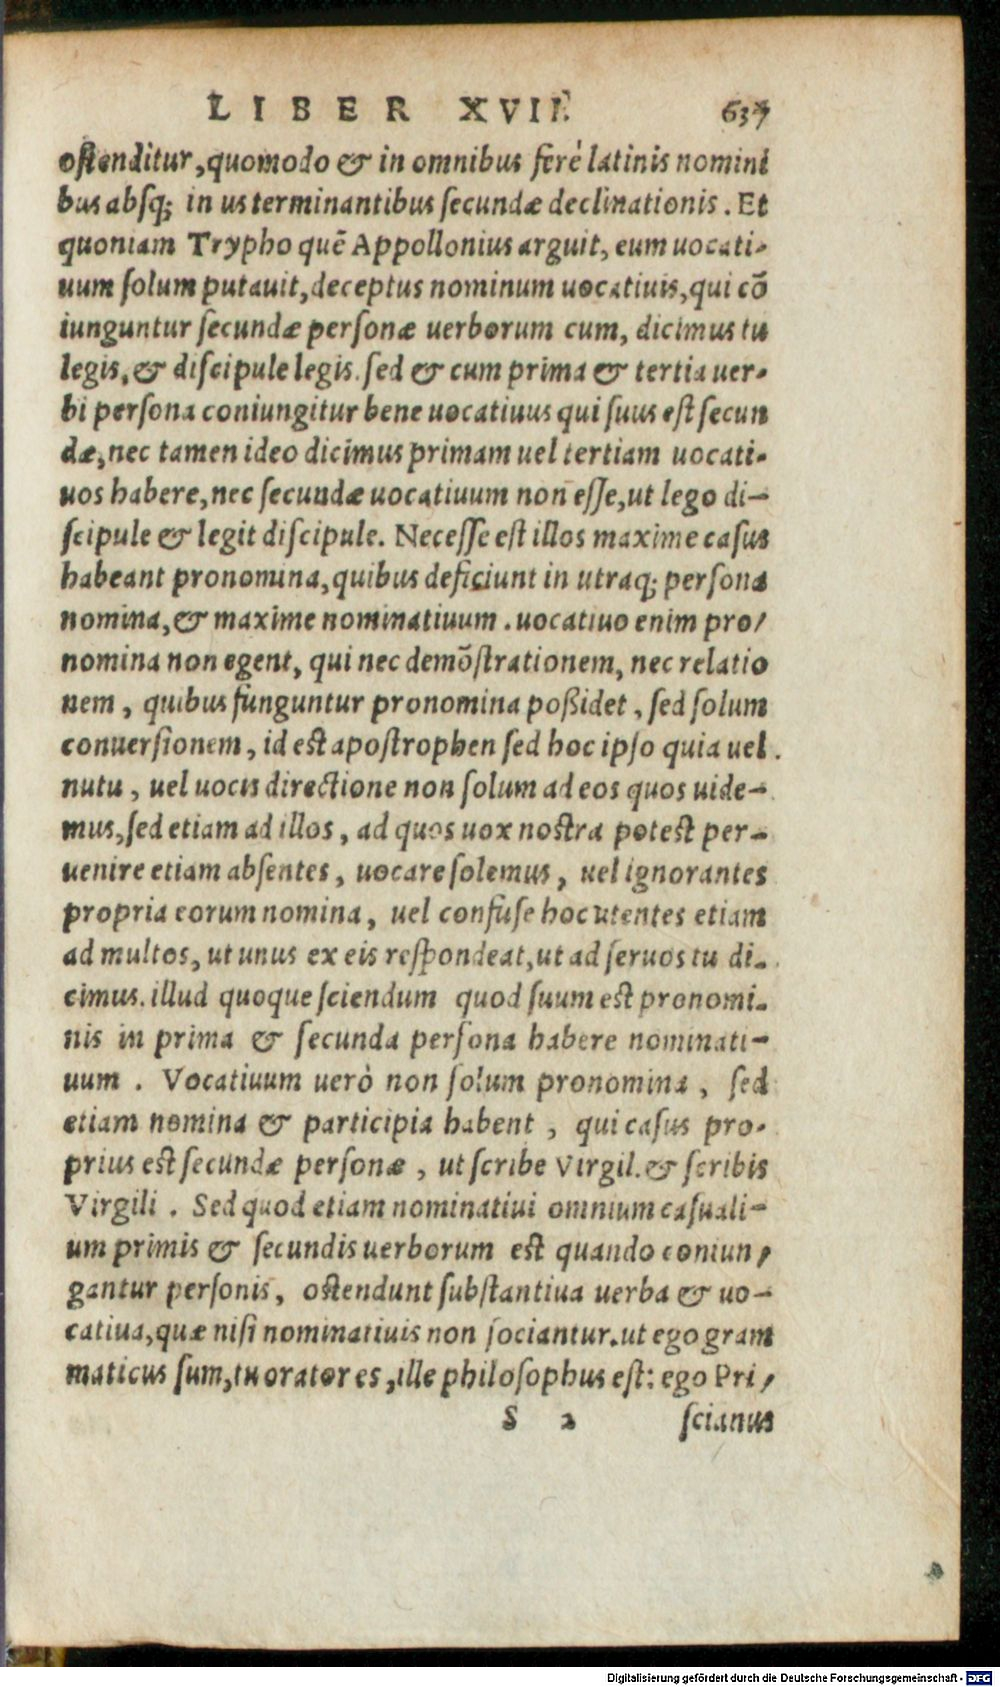 LIBER XVII. 637
ostenditur, quomodo & in omnibus ferè latinis nomini
bus absq; in us terminantibus secundæ declinationis. Et
quoniam Trypho quē Appollonius arguit, eum uocati-
uum solum putauit, deceptus nominum uocatiuis, qui cō
iunguntur secundæ personæ uerborum cum, dicimus tu
legis, & discipule legis. sed & cum prima & tertia uer-
bi persona coniungitur bene uocatiuus qui suus est secun
dæ, nec tamen ideo dicimus primam uel tertiam uocati-
uos habere, nec secundæ uocatiuum non esse, ut lego di-
scipule & legit discipule. Necesse est illos maxime casus
habeant pronomina, quibus deficiunt in utraq; persona
nomina, & maxime nominatiuum. uocatiuo enim pro/
nomina non egent, qui nec demōstrationem, nec relatio
nem, quibus funguntur pronomina poßidet, sed solum
conuersionem, id est apostrophen sed hoc ipso quia uel.
nutu, uel uocis directione non solum ad eos quos uide-
mus, sed etiam ad illos, ad quos uox nostra potest per-
uenire etiam absentes, uocare solemus, uel ignorantes
propria eorum nomina, uel confuse hoc utentes etiam
ad multos, ut unus ex eis respondeat, ut ad seruos tu di-
cimus. illud quoque sciendum quod suum est pronomi-
nis in prima & secunda persona habere nominati-
uum. Vocatiuum uerò non solum pronomina, sed
etiam nomina & participia habent, qui casus pro-
prius est secundæ personæ, ut scribe Virgil. & scribis
Virgili. Sed quod etiam nominatiui omnium casuali-
um primis & secundis uerborum est quando coniun/
gantur personis, ostendunt substantiua uerba & uo-
catiua, quæ nisi nominatiuis non sociantur. ut ego gram
maticus sum, tu orator es, ille philosophus est: ego Pri/
S 2 scianus
Digitalisierung gefördert durch die Deutsche Forschungsgemeinschaft - DFG